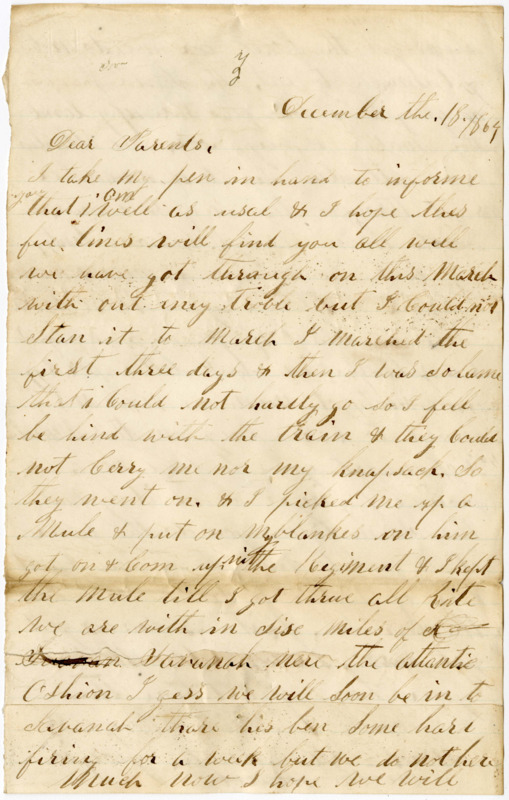 December the. 18. 1864
Dear Parents.
I take my pen in hand to informe
you that i am well as usal & I hope thes
fue lines will find you all well
we have got through on this March
with out iny troble but I Could not
Stan it to March I Marched the
first three days & then I was so lame
that i Could not hardly go so I fell
be hind with the train & they Could
not Cerry me nor my knapsack. So
they went on. & I picked me up a
Mule & put on my blankes on him
got on & Com up with the Regiment & I kept
the Mule till I got thrue all Rite
we are with in sise miles of
Savanah nere the atlantic
Oshion I gess we will soon be in to
Savanah thare hes ben some hard
firing for a week but we do not here
Much now I hope we will